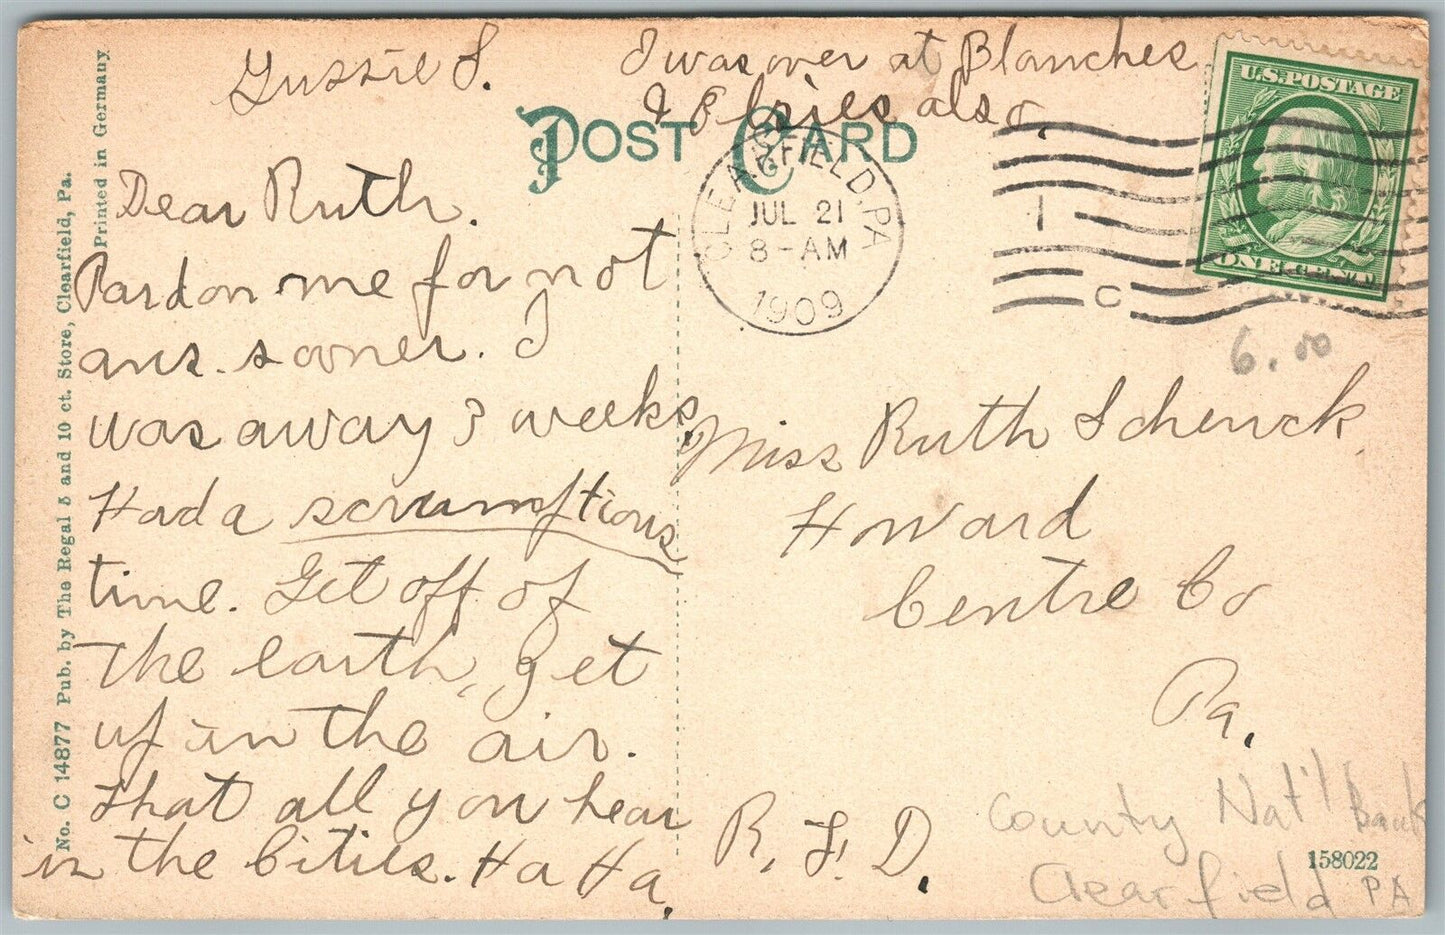 Gussie S.
I was over at Blanches
& Elsies also.
POST CARD
CLEARFIELD, PA
JUL 21
8-AM
1909
1
C
U.S. POSTAGE
ONE CENT
6.00
Dear Ruth.
Pardon me for not
ans. sooner. I
was away 3 weeks,
Had a scrumptious
time. Get off of
the earth, get
up in the air.
that all you hear
in the Cities. Ha Ha.
Miss Ruth Schenck
Howard
Centre Co
Pa.
R. F. D.
County Nat'l Bank
Clearfield PA
158022
No. C 14877 Pub. by The Regal 5 and 10 ct. Store, Clearfield, Pa.
Printed in Germany